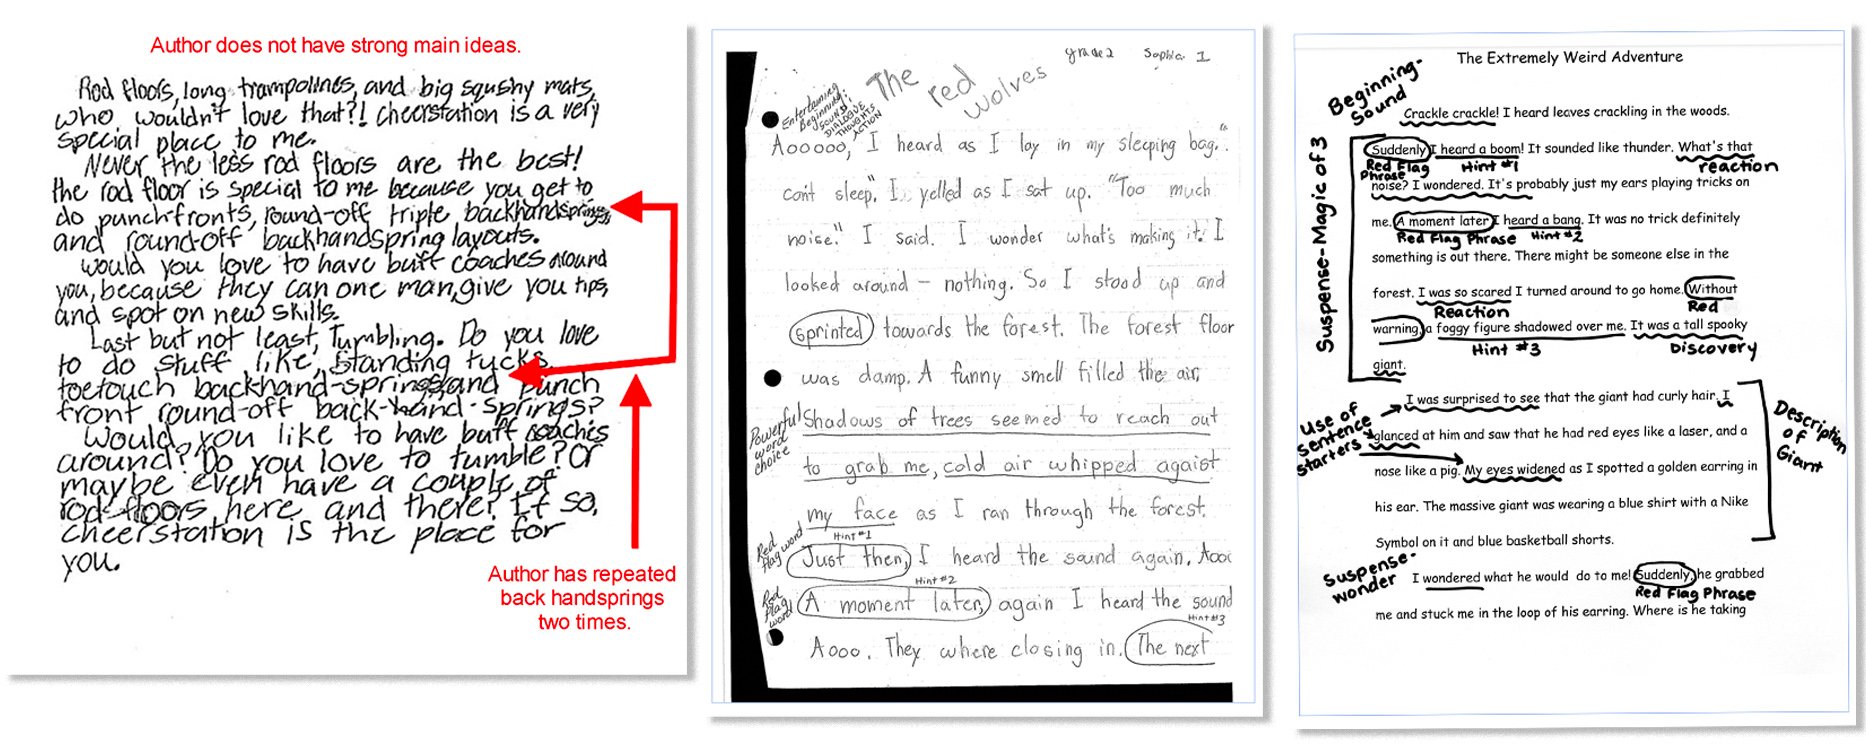 Author does not have strong main ideas.
Rod floors, long trampolines, and big squshy mats,
who wouldn't love that?! Cheerstation is a very
special place to me.
Never the less rod floors are the best!
the rod floor is special to me because you get to
do punch-fronts, round-off triple backhandsprings,
and round-off backhandspring layouts.
Would you love to have buff coaches around
you, because they can one man, give you tips,
and spot on new skills.
Last but not least, Tumbling. Do you love
to do stuff like, Standing tucks,
toetouch backhand-springs, and punch
front round-off back-hand-springs?
Would, you like to have buff coaches
around? Do you love to tumble? Or
maybe even have a couple of
rod floors here and there? If so,
cheerstation is the place for
you.
Author has repeated
back handsprings
two times.
grade 2 Sophia 1
The red wolves
Entertaining
Beginning:
SOUND
DIALOGUE
THOUGHTS
ACTION
Aooooo, I heard as I lay in my sleeping bag. "
can't sleep" I yelled as I sat up. "Too much
noise." I said. I wonder what's making it. I
looked around – nothing. So I stood up and
sprinted towards the forest. The forest floor
was damp. A funny smell filled the air,
Powerful
word
choice
Shadows of trees seemed to reach out
to grab me, cold air whipped agaist
my face as I ran through the forest.
Red
flag word
Hint #1
Just then, I heard the sound again, Aooo
Hint #2
Red
flag
word
A moment later, again I heard the sound
Hint #3
Aooo. They where closing in. The next
The Extremely Weird Adventure
Beginning-
Sound
Crackle crackle! I heard leaves crackling in the woods.
Suspense-Magic of 3
Suddenly I heard a boom! It sounded like thunder. What's that
Red Flag Hint #1 reaction
Phrase
noise? I wondered. It's probably just my ears playing tricks on
me. A moment later I heard a bang. It was no trick definitely
Red Flag Phrase Hint #2
something is out there. There might be someone else in the
forest. I was so scared I turned around to go home. Without
Reaction Red
warning, a foggy figure shadowed over me. It was a tall spooky
Hint #3 Discovery
giant.
Use of
sentence
starters
I was surprised to see that the giant had curly hair. I
glanced at him and saw that he had red eyes like a laser, and a
nose like a pig. My eyes widened as I spotted a golden earring in
his ear. The massive giant was wearing a blue shirt with a Nike
Symbol on it and blue basketball shorts.
Description
of
Giant
Suspense-
wonder
I wondered what he would do to me! Suddenly, he grabbed
Red Flag Phrase
me and stuck me in the loop of his earring. Where is he taking